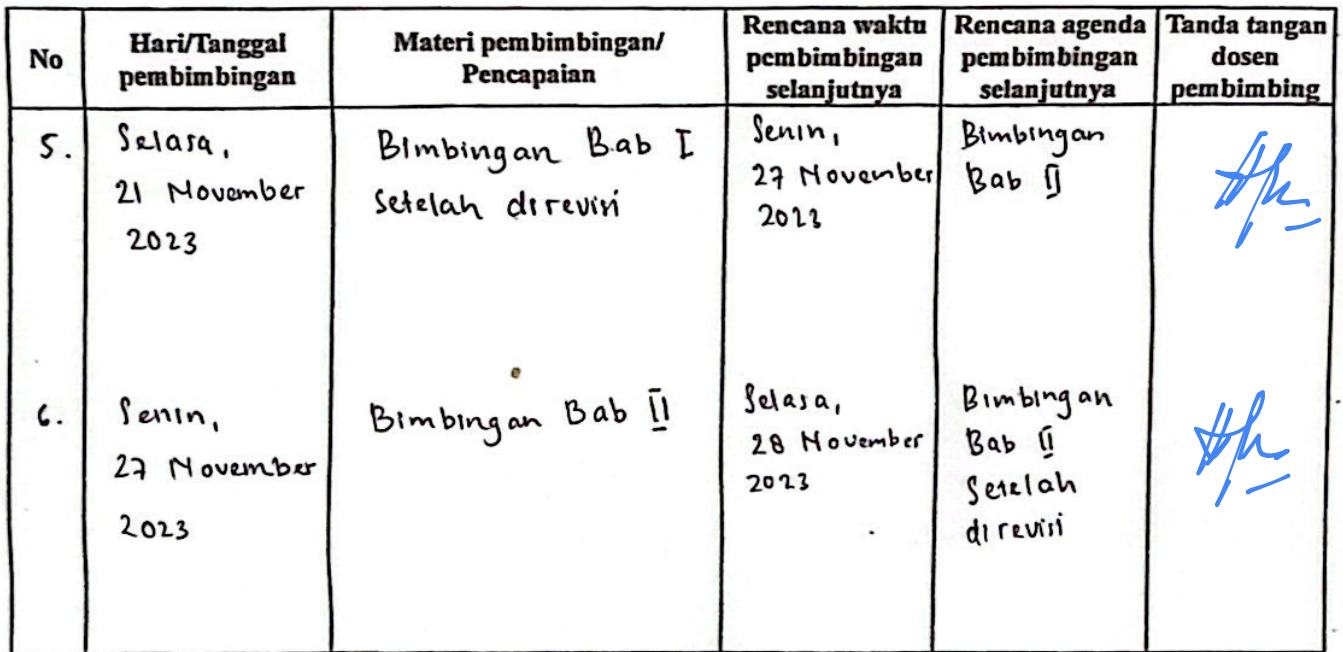 No
Hari/Tanggal
pembimbingan
Materi pembimbingan/
Pencapaian
Rencana waktu
pembimbingan
selanjutnya
Rencana agenda
pembimbingan
selanjutnya
Tanda tangan
dosen
pembimbing
5.
Selasa,
21 November
2023
Bimbingan Bab I
Setelah direvisi
Senin,
27 November
2023
Bimbingan
Bab II
6.
Senin,
27 November
2023
Bimbingan Bab II
Selasa,
28 November
2023
Bimbingan
Bab II
Setelah
direvisi